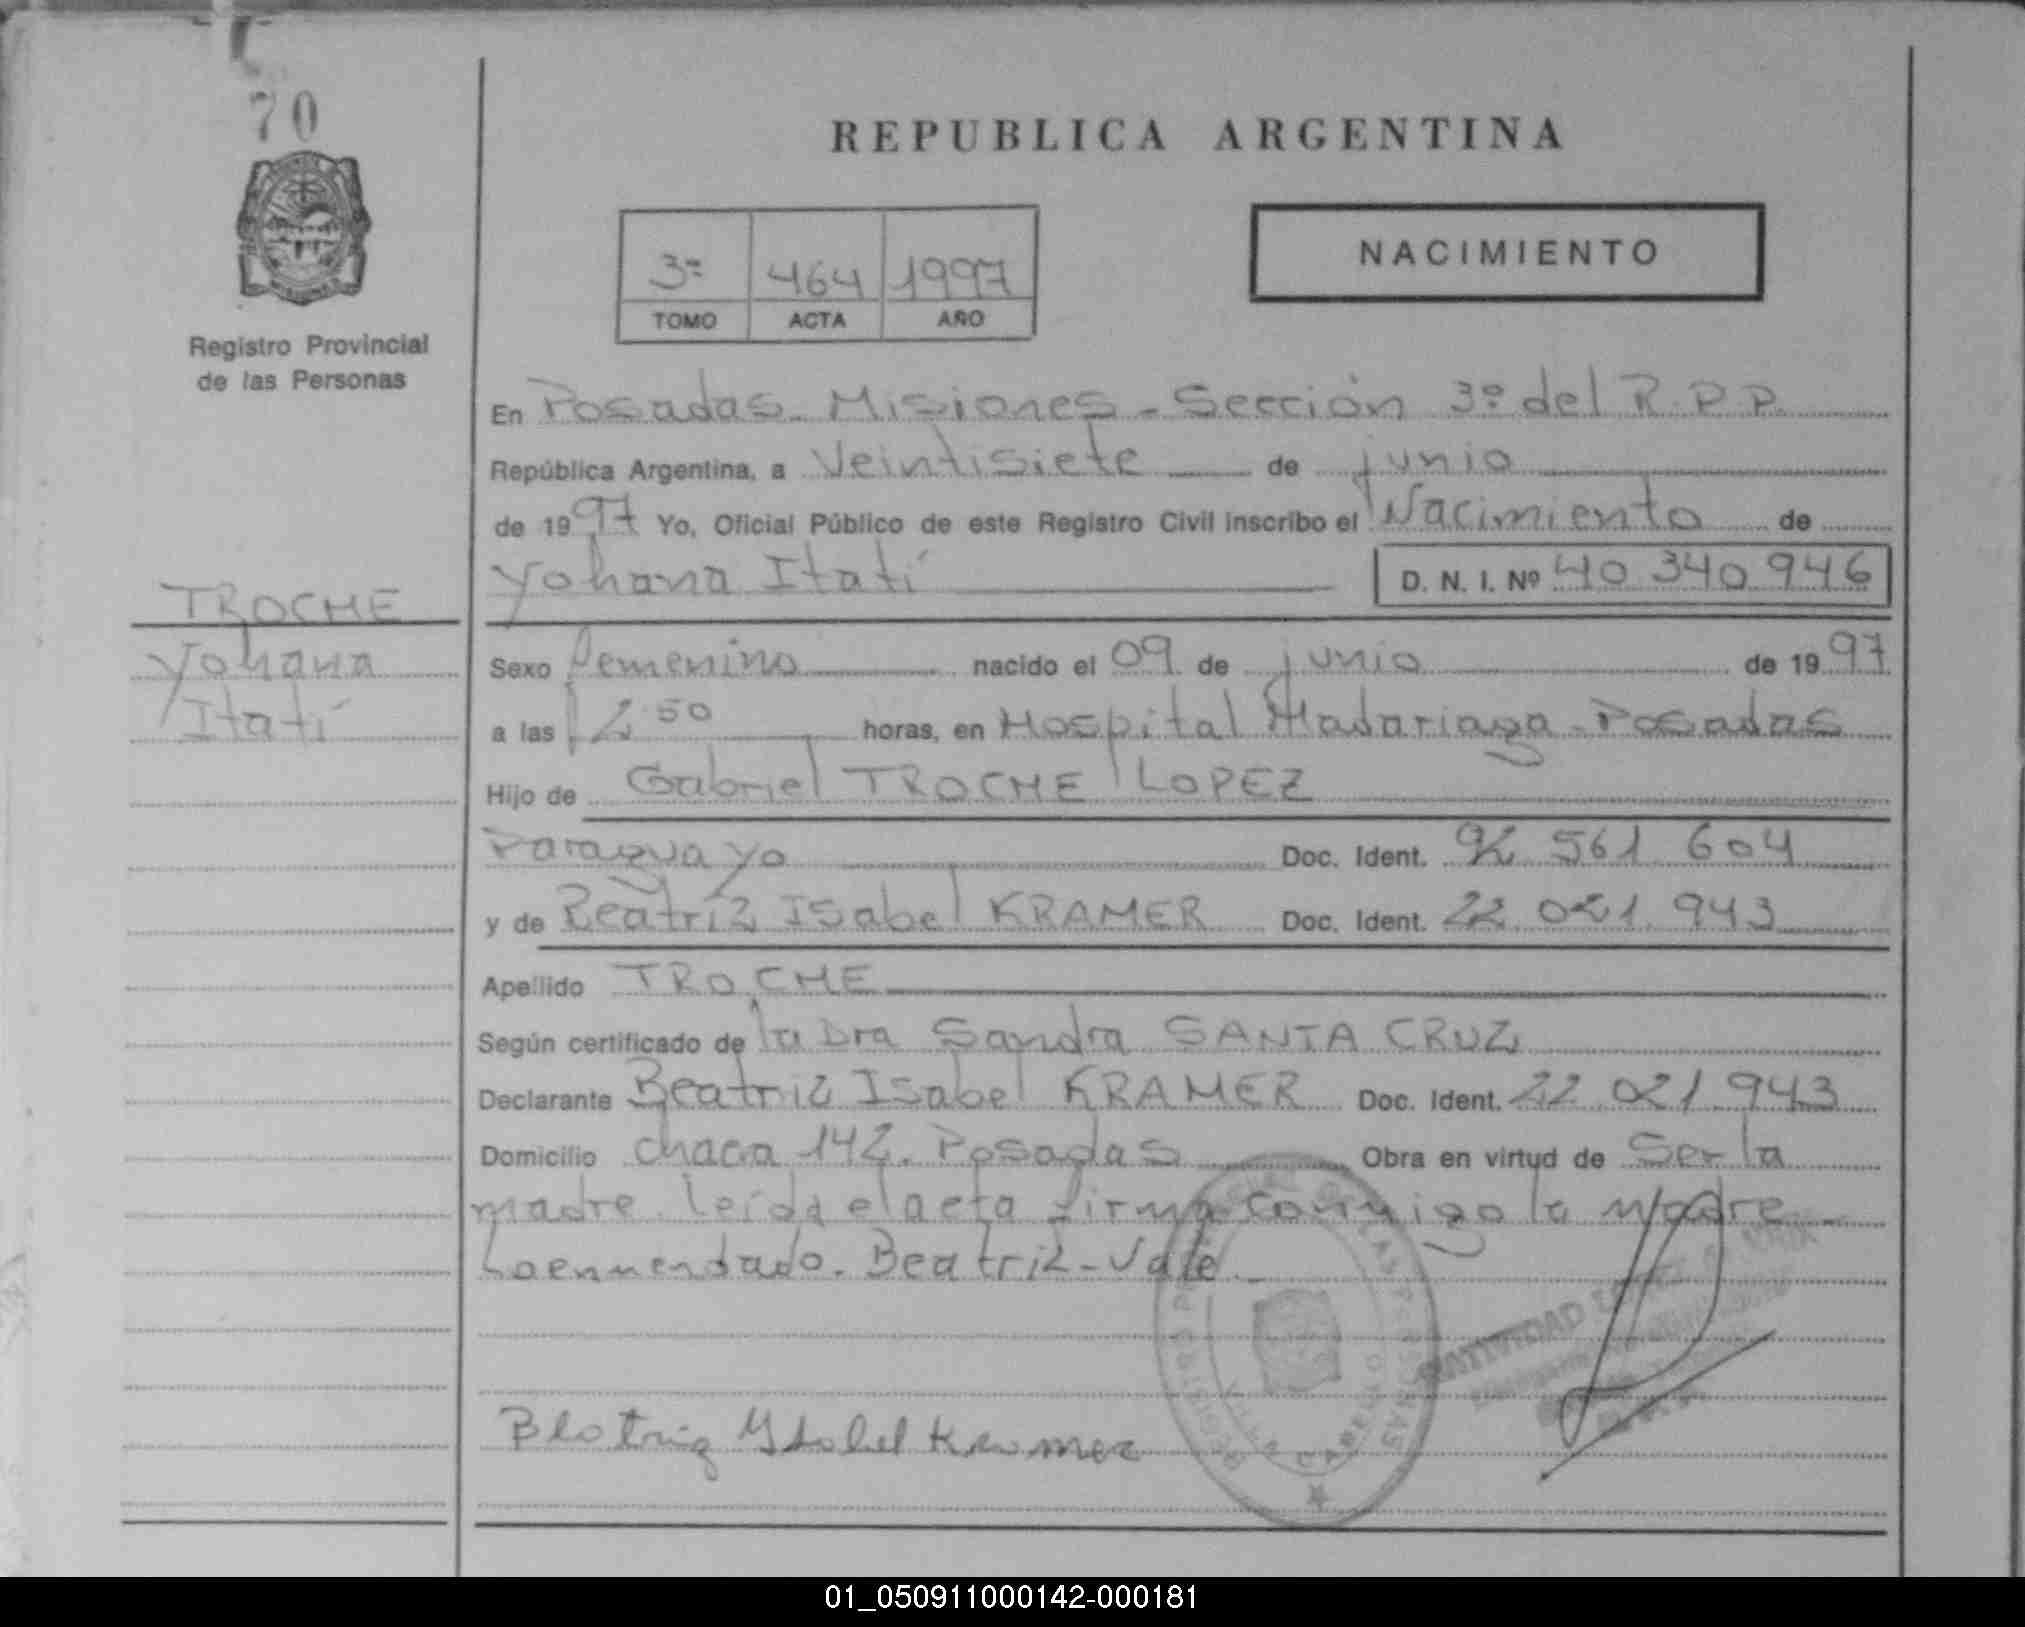 70
REPUBLICA ARGENTINA
3º 464 1997
TOMO ACTA AÑO
NACIMIENTO
Registro Provincial
de las Personas
En Posadas - Misiones - Sección 3º del R.P.P.
República Argentina, a Veintisiete de junio
de 1997 Yo, Oficial Público de este Registro Civil inscribo el Nacimiento de
Yohana Itatí D. N. I. Nº 40 340 946
TROCHE
Yohana
Itatí
Sexo Femenino nacido el 09 de junio de 1997
a las 12 50 horas, en Hospital Madariaga - Posadas
Hijo de Gabriel TROCHE LOPEZ
Paraguayo Doc. Ident. 92 561 604
y de Beatriz Isabel KRAMER Doc. Ident. 22 021 943
Apellido TROCHE
Según certificado de la Dra Sandra SANTA CRUZ
Declarante Beatriz Isabel KRAMER Doc. Ident. 22 021 943
Domicilio chacra 142. Posadas Obra en virtud de Ser la
madre. leida el acta firma conmigo la madre
Lo enmendado. Beatriz - Vale
NATIVIDAD
Beatriz Ysabel Kramer
01_050911000142-000181